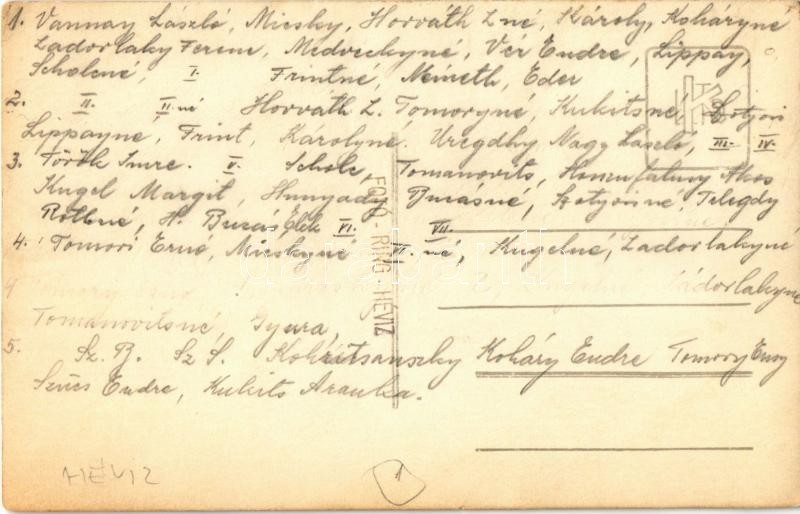 1. Vannay László, Micsky, Horváth L né, Károly, Koháryné
Zadorlaky Ferenc, Medveckyné, Vér Endre, Lippay,
Scholcné, I. Frintné, Németh, Eder
2. II. II.né Horváth L. Tomoryné, Kukitsné, Szotyori
Lippayné, Frint, Károlyné. Nagy László, III. IV.
3. Török Imre. V. Scholc, Tomanovits, Akos
Kugel Margit, Hunyady Buzásné, Szotyoriné, Telegdy
Rothné, H. Buzás Elek VI. VII.
4. Tomori Erné, Micskyné VI. né, Kugelné, Zadorlakyné
4
Zádorlakyné
Tomanovitsné, Gyura,
5. Sz. B. Sz S. Koháry Endre Tomory
Szűcs Endre, Kukits Aranka.
FOTO - RING - HÉVIZ
HÉVIZ
1